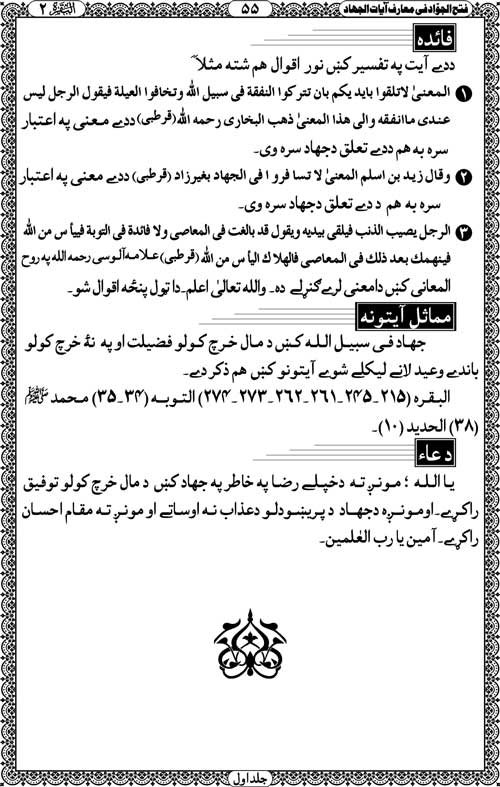 فتح الجوّاد فی معارف آیات الجهاد
۵۵
البقرة ۲
فائده
ددے آیت په تفسیر کښ نور اقوال هم شته مثلاً
❶ المعنیٰ لاتلقوا باید یکم بان تترکوا النفقة فی سبیل الله وتخافوا العیلة فیقول الرجل لیس
عندی ماانفقه والی هذا المعنیٰ ذهب البخاری رحمه الله (قرطبی) ددے معنی په اعتبار
سره به هم ددے تعلق دجهاد سره وی۔
❷ وقال زید بن اسلم المعنیٰ لا تسا فرو ا فی الجهاد بغیرزاد (قرطبی) ددے معنی په اعتبار
سره به هم د دے تعلق دجهاد سره وی۔
❸ الرجل یصیب الذنب فیلقی بیدیه ویقول قد بالغت فی المعاصی ولا فائدة فی التوبة فییأ س من الله
فینهمك بعد ذلك فی المعاصی فالهلاك الیأ س من الله (قرطبی) علامه آلوسی رحمه الله په روح
المعانی کښ دامعنی لرے ګنړلے ده۔ والله تعالیٰ اعلم۔دا ټول پنځه اقوال شو۔
مماثل آیتونه
جهاد فی سبیل الله کښ د مال خرچ کولو فضیلت او په نۀ خرچ کولو
باندے وعید لانے لیکلے شوے آیتونو کښ هم ذکر دے۔
البقره (۲۱۵۔۲۴۵۔۲۶۱۔۲۶۲۔۲۷۳۔۲۷۴) التوبه (۳۴۔۳۵) محمد ﷺ
(۳۸) الحدید (۱۰)۔
دعاء
یا الله ؛ مونږ ته دخپلے رضا په خاطر په جهاد کښ د مال خرچ کولو توفیق
راکړے۔اومونږه دجهاد د پریښودلو دعذاب نه اوساتے او مونږ ته مقام احسان
راکړے۔آمین یا رب العٰلمین۔
جلد اول